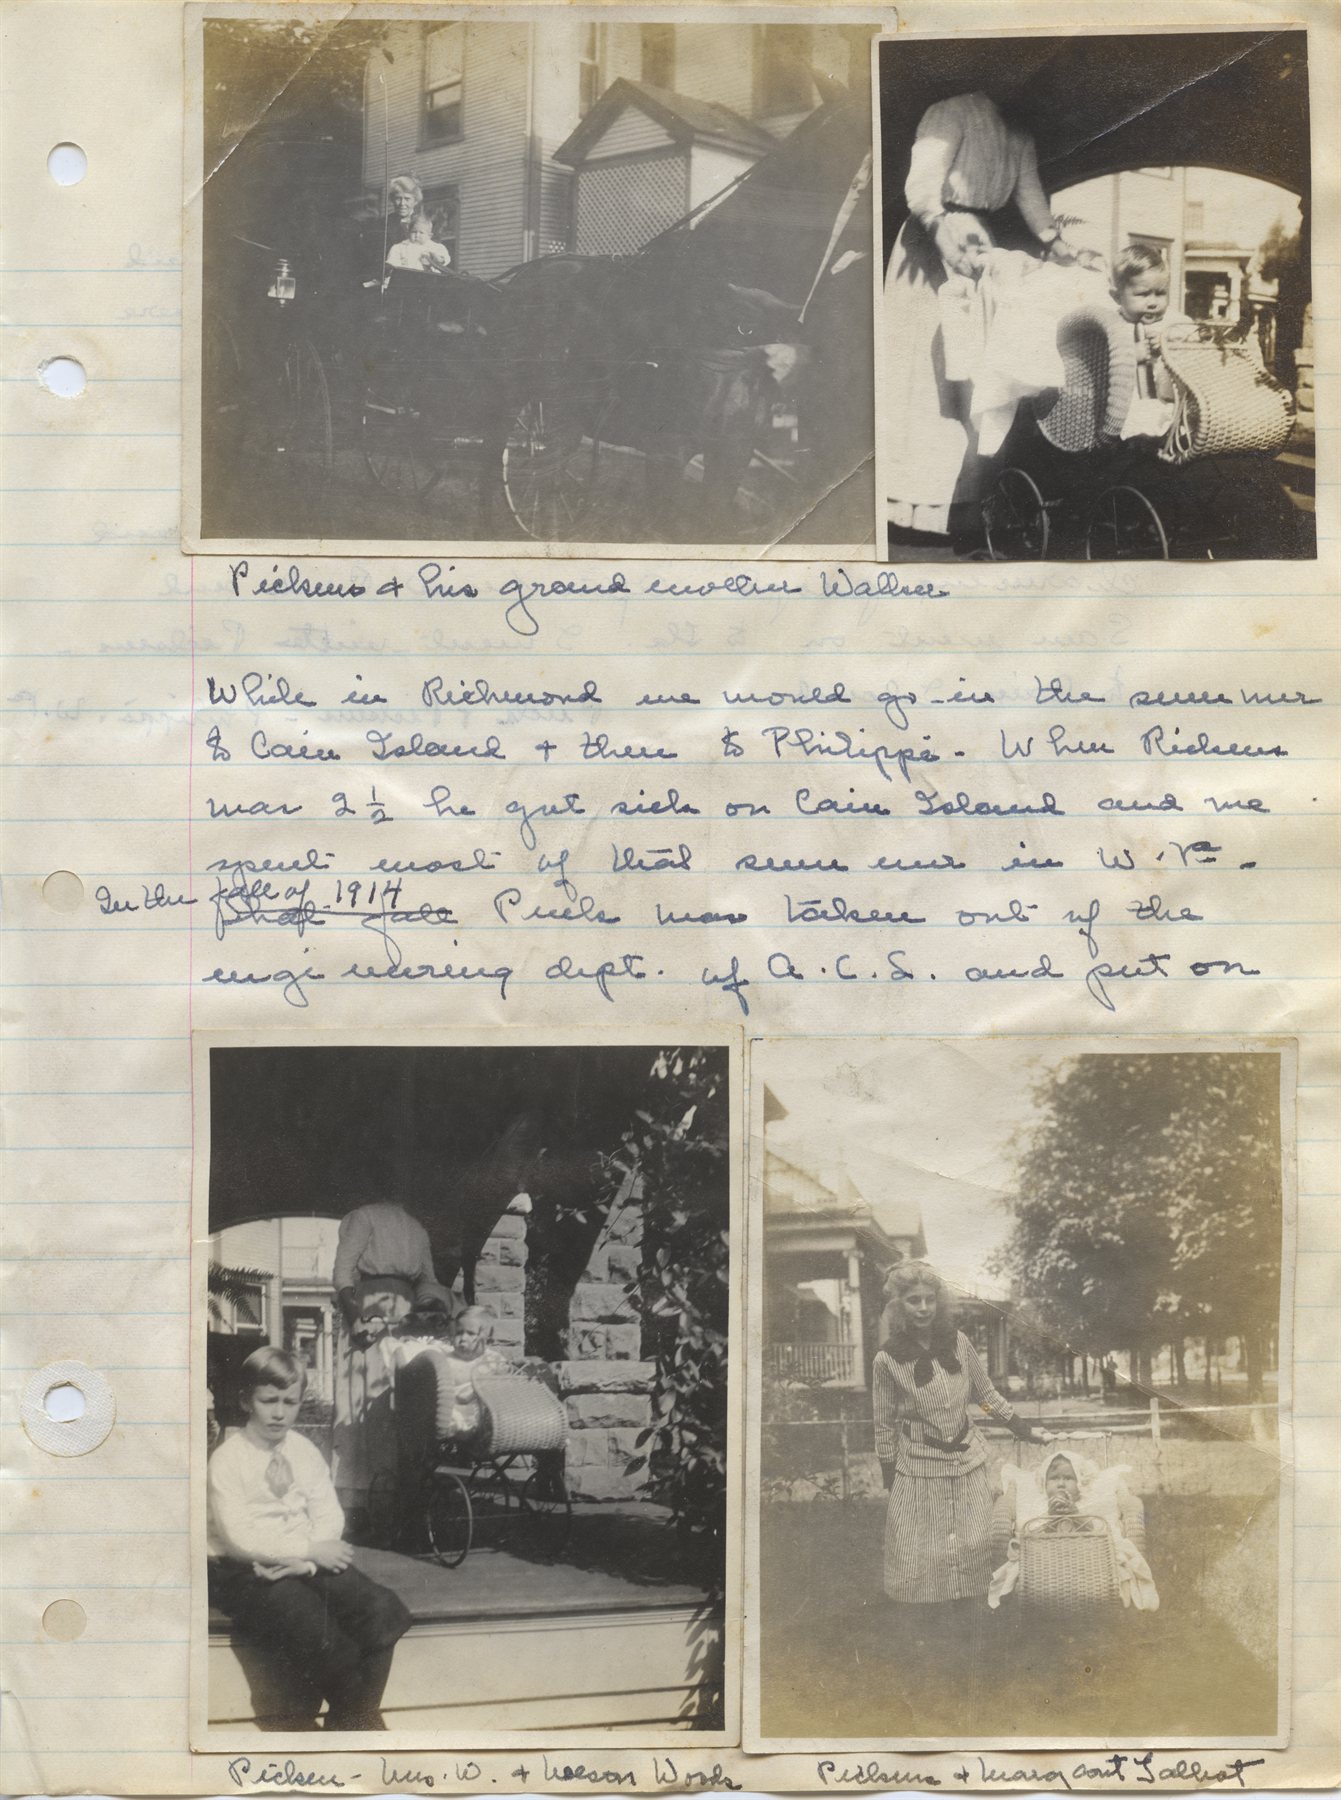 Pickens & his grand mother Walker
While in Richmond we would go in the summer
to Cain Island & then to Philippi - When Pickens
was 2 ½ he got sick on Cain Island and we
spent most of that summer in W. Va -
In the fall of 1914
that fall Pick was taken out of the
engineering dept. of A. C. L. and put on
Pickens - Mrs. W. & Nelson Woods
Pickens & Margaret Talbot